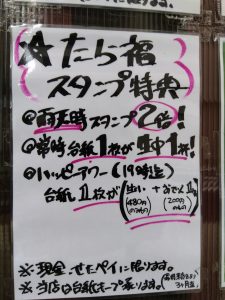 ☆たら福
スタンプ特典
◎雨天時スタンプ2倍!
◎常時台紙1枚が生中1杯!
◎ハッピーアワー(19時迄)
台紙1枚が
生ハイ+おでん1皿
480円のもの
200円のもの
※現金、せたペイに限ります。
※当店は台紙キープ承ります。
有効期限
3ヶ月位